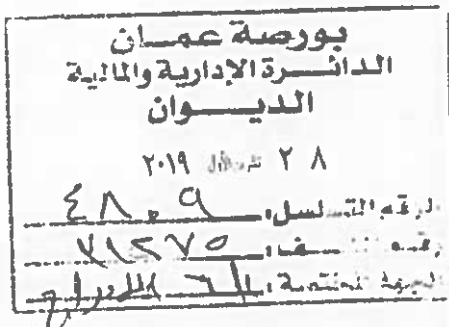 بورصة عمان
الدائرة الإدارية والمالية
الديوان
٢٨ تشرين الأول ٢٠١٩
الرقم المتسلسل: ٤٨٠٩
رقم الملف: ٣١٢٧٥
الجهة المختصة: